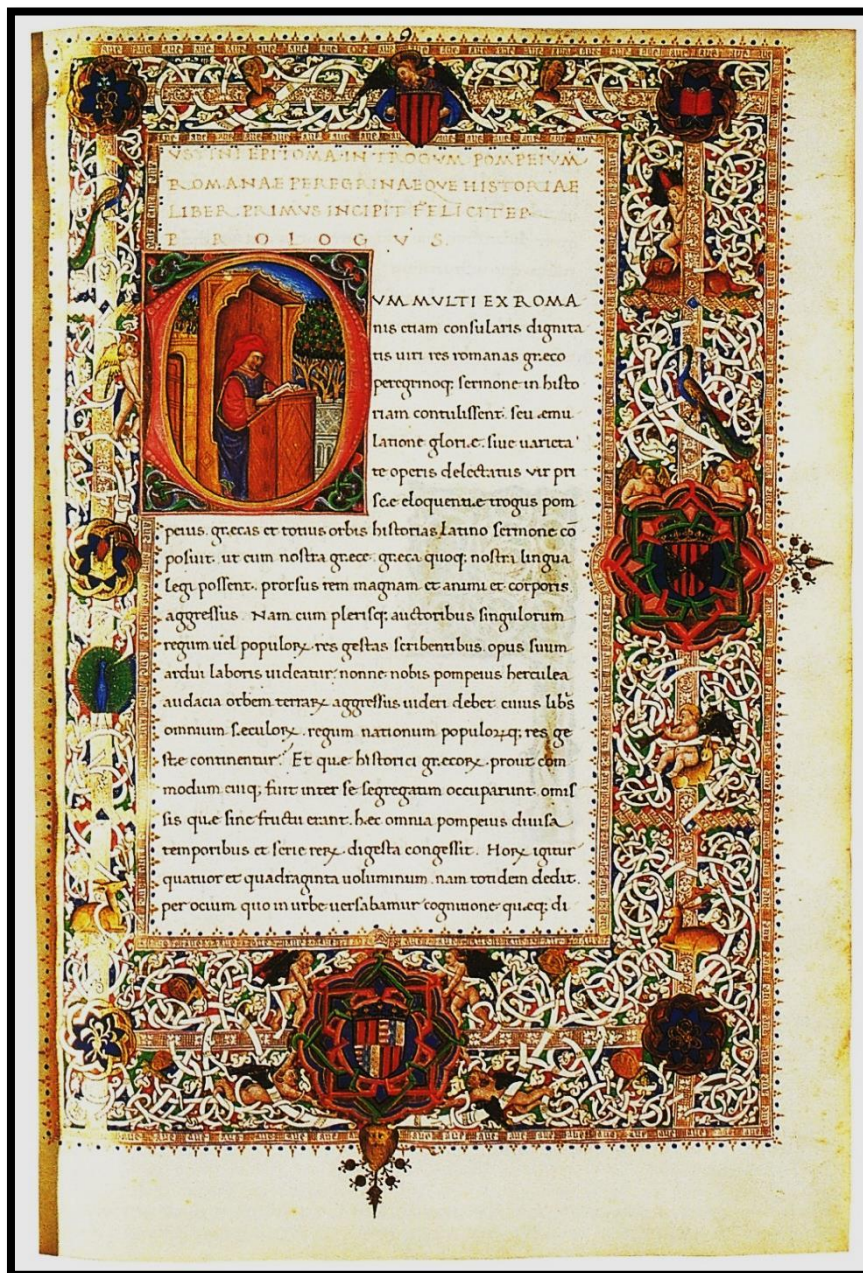 VSTINI EPITOMA IN TROGVM POMPEIVM
ROMANAE PEREGRINAEQVE HISTORIAE
LIBER PRIMVS INCIPIT FELICITER
PROLOGVS.
VM MVLTI EX ROMA
nis etiam consularis dignita
tis uiti res romanas græco
peregrinoq; sermone in histo
riam contulissent. seu æmu
latione gloriæ. siue uarieta
te operis delectatus vir pri
scæ eloquentiæ trogus pom
peius. græcas et totius orbis historias latino sermone cō
posuit. ut cum nostra græce. græca quoq; nostri lingua
legi possent. prorsus rem magnam et animi et corporis.
aggressus. Nam cum plerisq; auctoribus singulorum
regum uel populoꝝ. res gestas scribentibus. opus suum
ardui laboris uideatur. nonne nobis pompeius herculea
audacia orbem terraꝝ aggressus uideri debet cuius libs
omnium sæculoꝝ. regum nationum populoꝝq; res ge
stæ continentur. Et quæ historici græcoꝝ. prout com
modum cuiq; fuit inter se segregatim occuparunt. omis
sis quæ sine fructu erant. hæc omnia pompeius diuisa
temporibus et serie reꝝ. digesta congessit. Hoꝝ igitur
quatuor et quadraginta uoluminum. nam totidem dedit.
per ocium quo in urbe uersabamur cognitione quæq; di